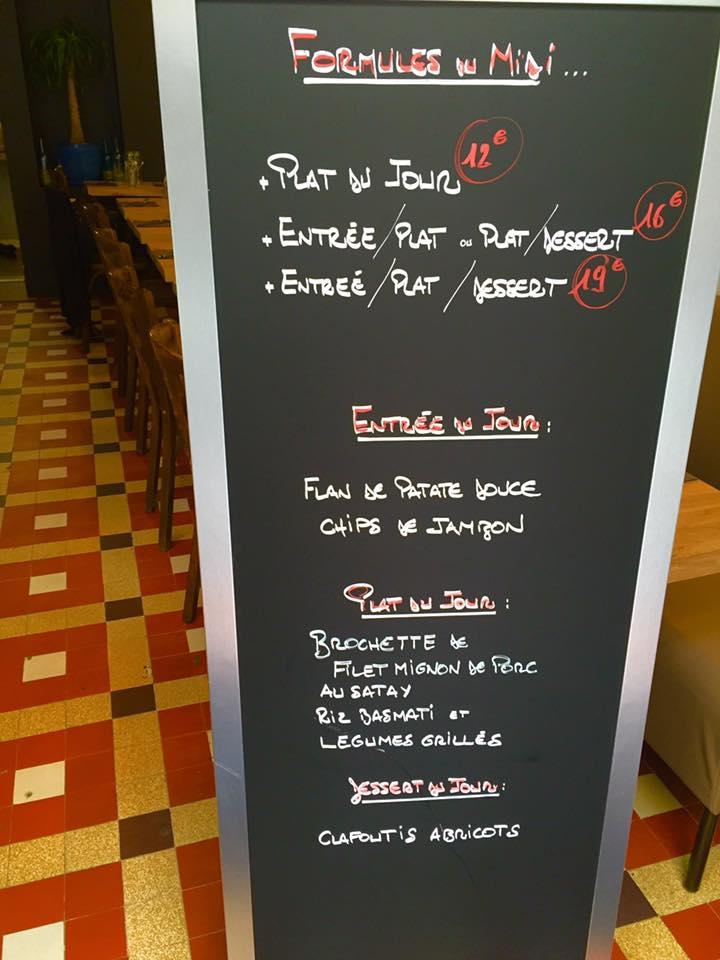 FORMULES DU MIDI...
+ PLAT DU JOUR 12€
+ ENTRÉE/PLAT OU PLAT/DESSERT 16€
+ ENTREÉ/PLAT/DESSERT 19€
ENTRÉE DU JOUR:
FLAN DE PATATE DOUCE
CHIPS DE JAMBON
PLAT DU JOUR:
BROCHETTE DE
FILET MIGNON DE PORC
AU SATAY
RIZ BASMATI ET
LÉGUMES GRILLÉS
DESSERT DU JOUR:
CLAFOUTIS ABRICOTS